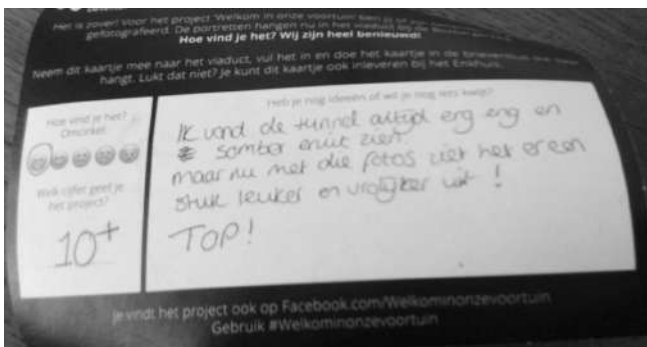 Het is zover! Voor het project 'Welkom in onze voortuin' ben jij
gefotografeerd. De portretten hangen nu in het viaduct bij de
Hoe vind je het? Wij zijn heel benieuwd!
Neem dit kaartje mee naar het viaduct, vul het in en doe het kaartje in de brievenbus die
hangt. Lukt dat niet? Je kunt dit kaartje ook inleveren bij het Enkhuis.
Hoe vind je het?
Omcirkel
Welk cijfer geef je
het project?
10+
Heb je nog ideeën of wil je nog iets kwijt?
Ik vond de tunnel altijd erg eng en
somber eruit zien.
maar nu met die fotos ziet het er een
stuk leuker en vrolijker uit !
TOP!
Je vindt het project ook op Facebook.com/Welkominonzevoortuin
Gebruik #Welkominonzevoortuin